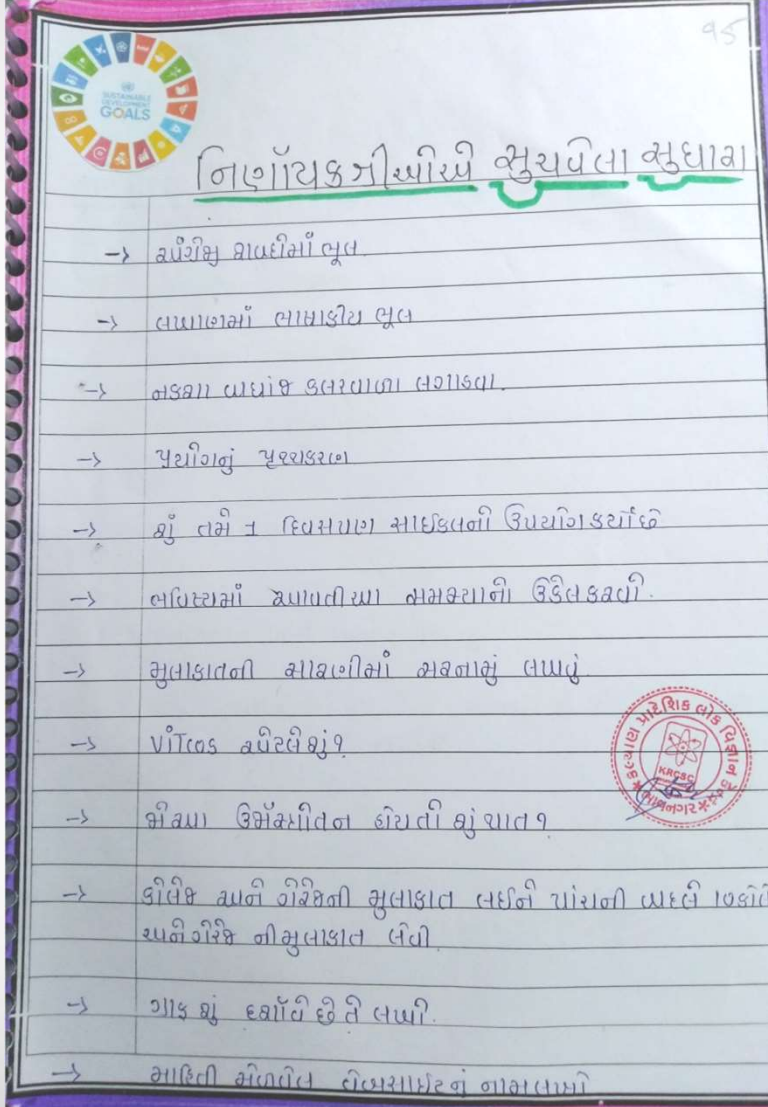 ૧5
SUSTAINABLE
DEVELOPMENT
GOALS
નિર્ણાયકશ્રીઓએ સુચવેલા સુધારા
→ અંગ્રેજી શબ્દોમાં ભૂલ.
→ લખાણમાં ભાષાકીય ભૂલ
→ નકશા બધાંજ કલરવાળા લગાડવા.
→ પ્રયોગનું પૃથ્થકરણ
→ શું તમે 1 દિવસપણ સાઈકલનો ઉપયોગ કર્યો છે
→ ભવિષ્યમાં આવતી આ સમસ્યાનો ઉકેલ કરવો.
→ મુલાકાતની સારણીમાં સરનામું લખવું.
→ VITCOS એટલે શું?
→ જો આ ઉમેશ્રીત ન હોય તો શું થાત?
→ કોલેજ અને ગેરેજની મુલાકાત લઈને પાંચની બદલે 10 કોલે
અને ગેરેજ ની મુલાકાત લેવી.
→ ગ્રાફ શું દર્શાવે છે તે લખો.
→ માહિતી મેળવેલ વેબસાઈટનું નામ લખો
કલ્યાણ પ્રાદેશિક લોક વિજ્ઞાન કે
KRCSC
ભાવનગર